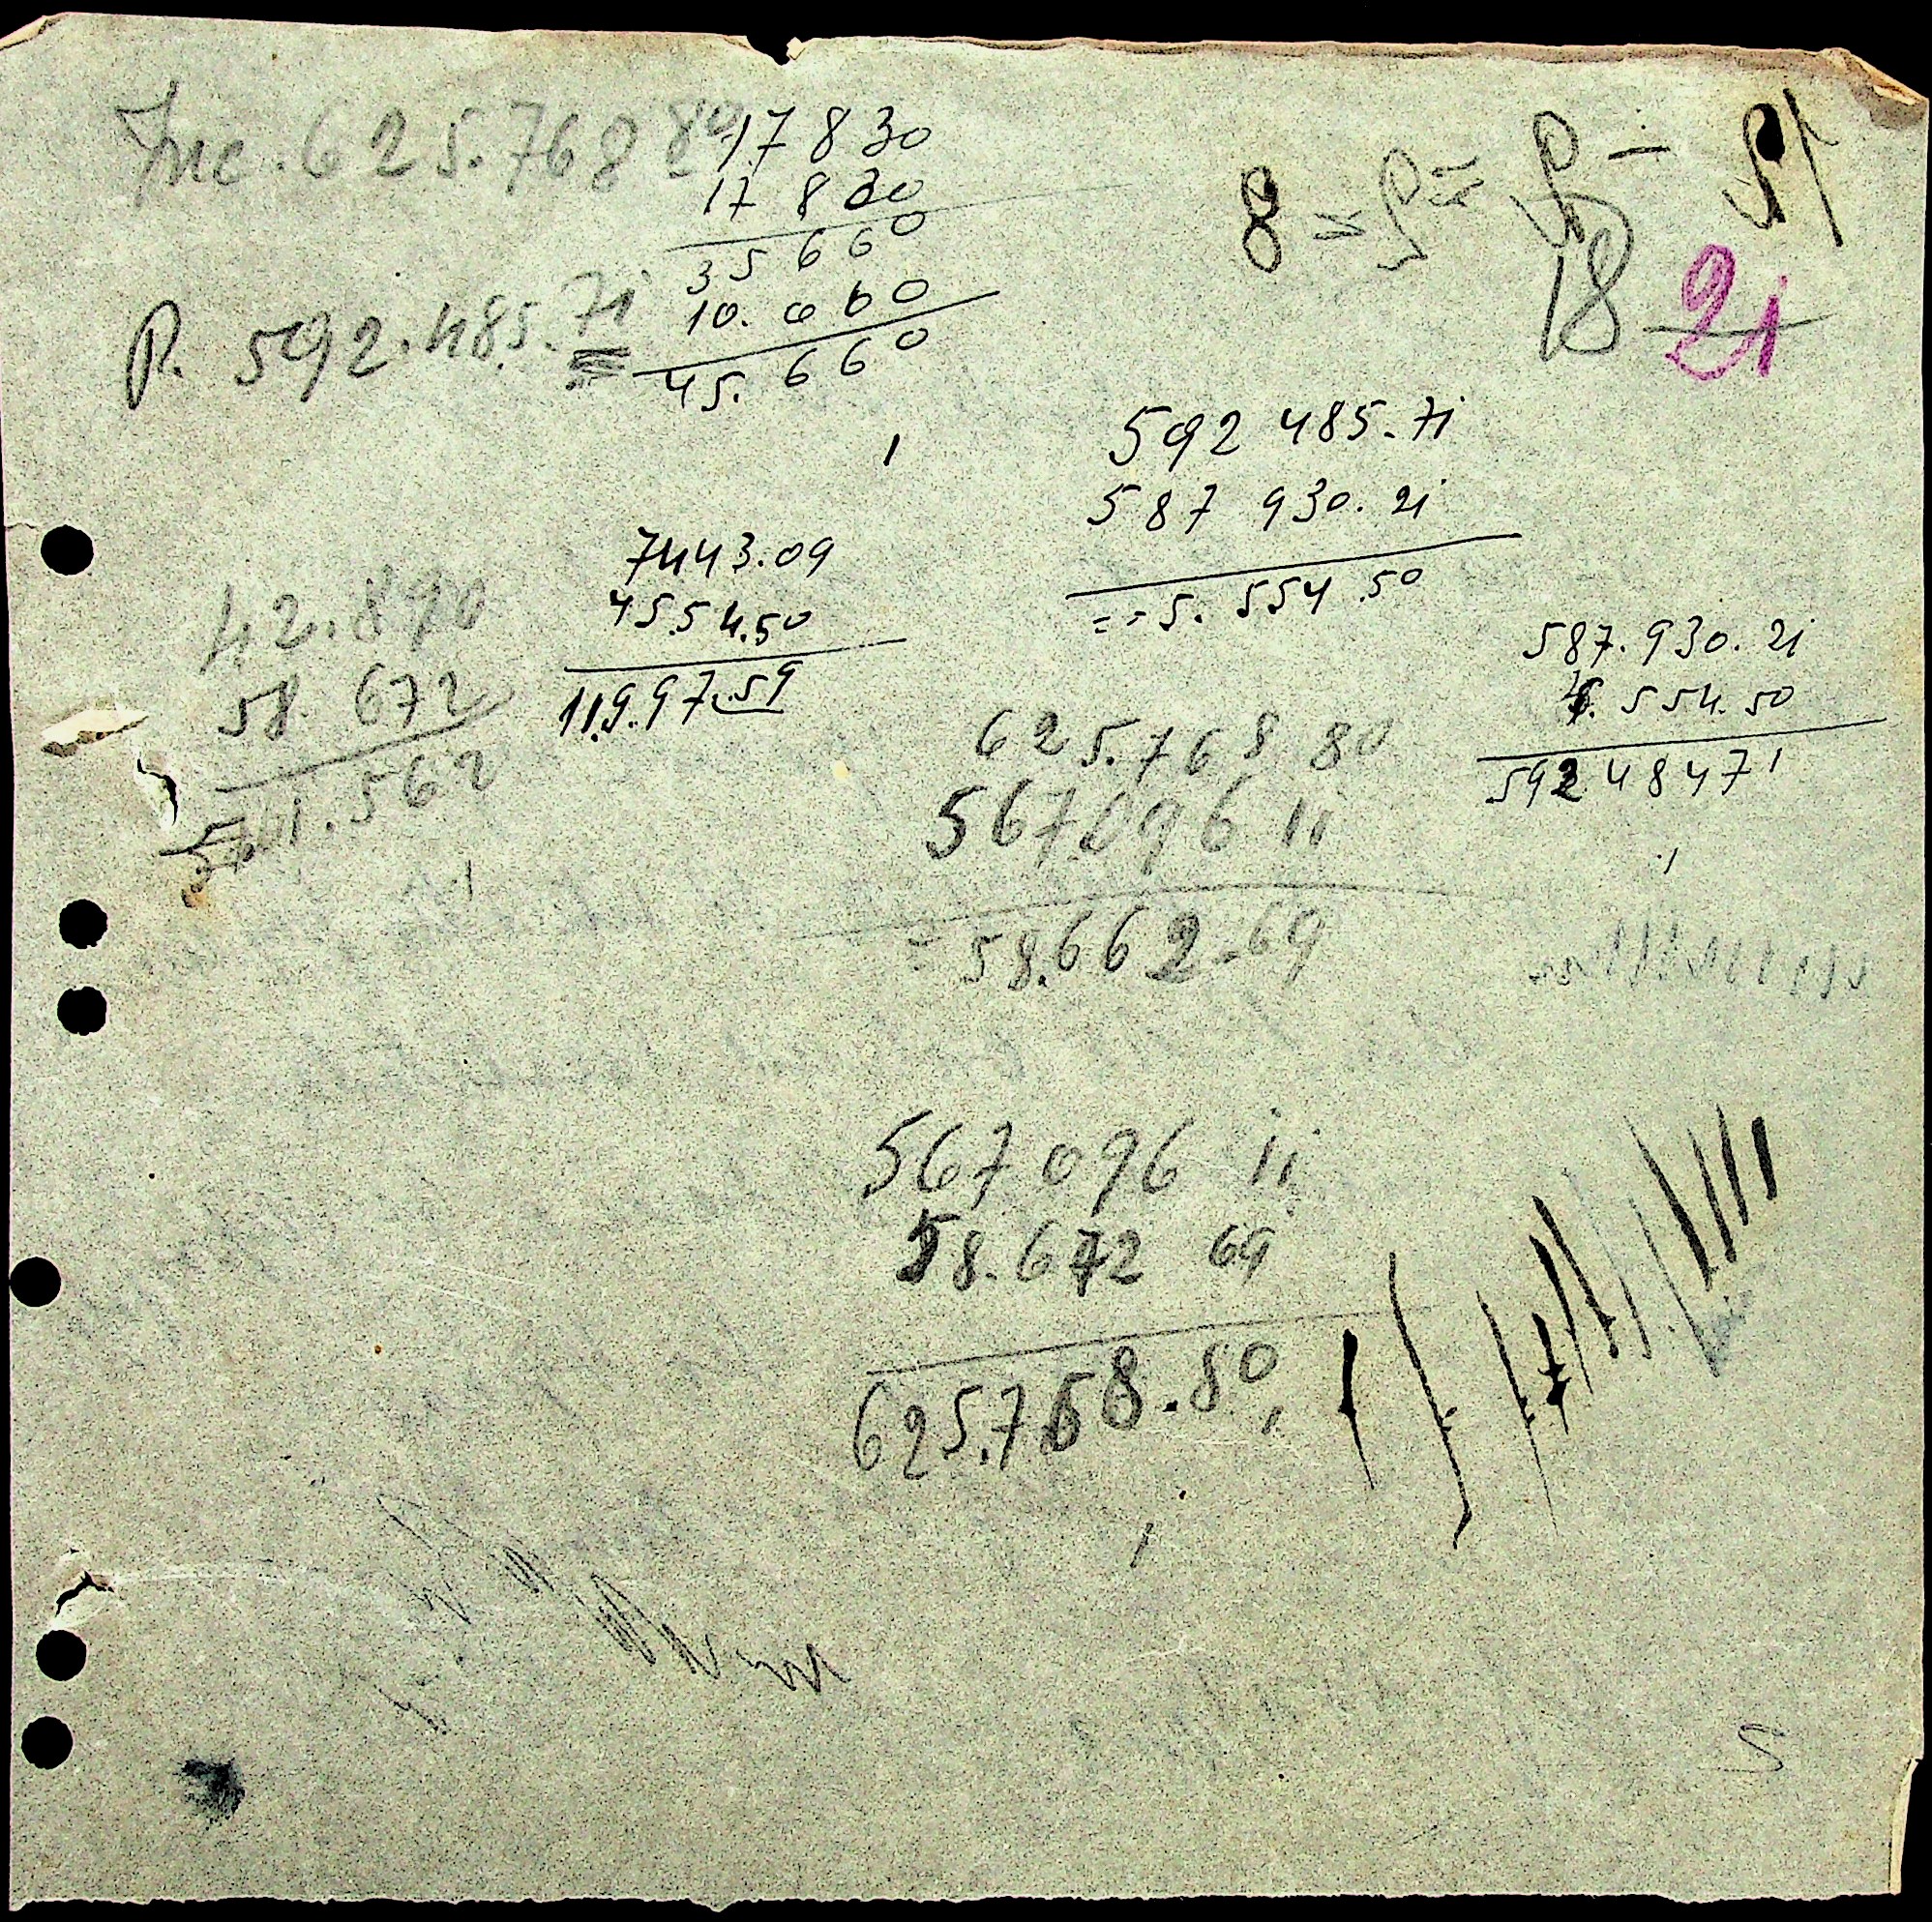 Inc. 625.768 80
17 830
17 830
35 660
10. 000
45. 660
P. 592.485.71
8
18 21
592 485.71
587 930.21
= = 5. 554.50
7443.09
4554.50
119.97.59
42.890
58. 672
562
587.930.21
554.50
592 484 71
625.768 80
567.096 11
= 58.662.69
567 096 11
58.672 69
625.768.80
S